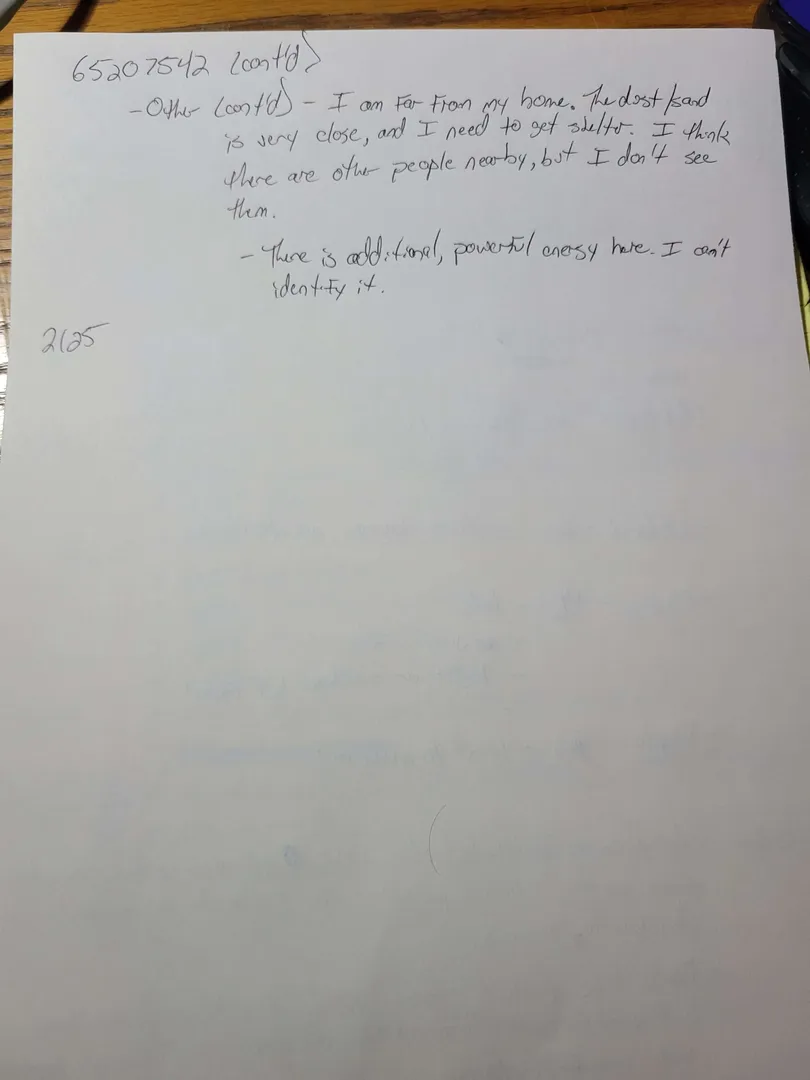 65207542 (cont'd)
- Other (cont'd) - I am far from my home. The dust/sand
is very close, and I need to get shelter. I think
there are other people nearby, but I don't see
them.
- There is additional, powerful energy here. I can't
identify it.
2125